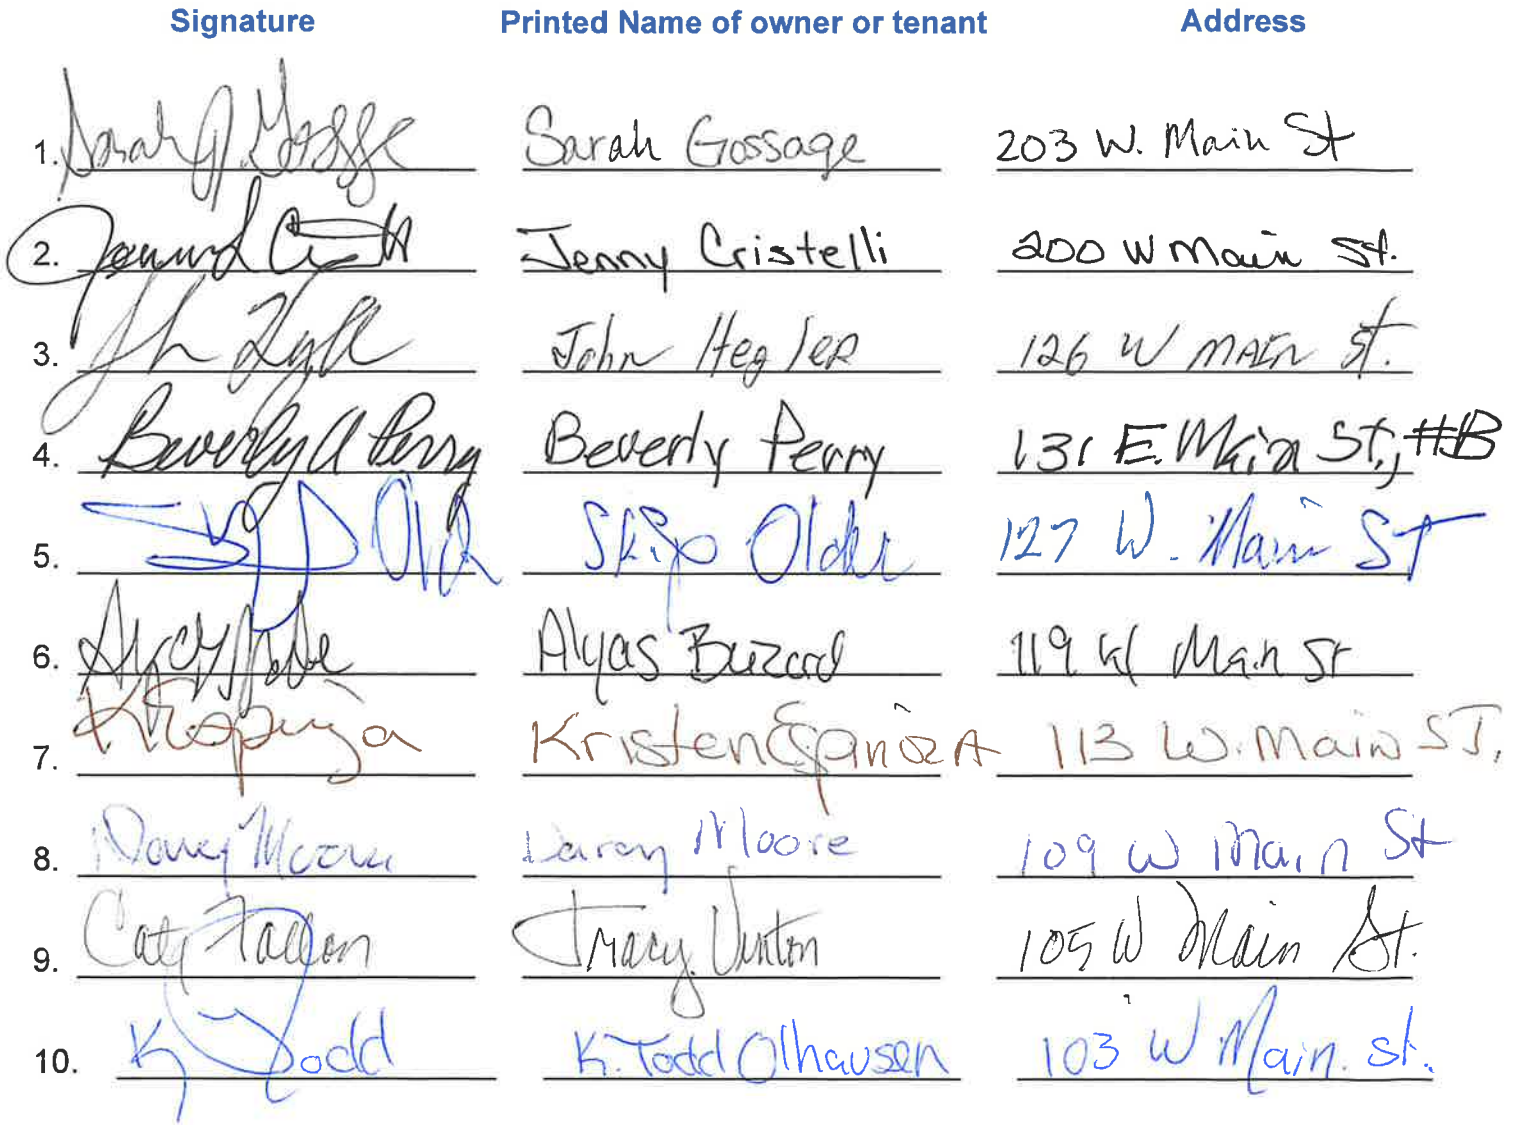 Signature Printed Name of owner or tenant Address
1. Sarah Gossage 203 W. Main St
2. Jenny Cristelli 200 W Main St.
3. John Hegler 126 W MAIN St.
4. Beverly A Perry Beverly Perry 131 E. Main St., #B
5. Skip Older 127 W. Main ST
6. Alyas Buzard 119 W Main St
7. KEspinoza Kristen Espinoza 113 W. Main ST.
8. Darcy Moore Darcy Moore 109 W Main St
9. Caty Fallon Tracy Vinton 105 W Main St.
10. K Todd K. Todd Olhausen 103 W Main. St.